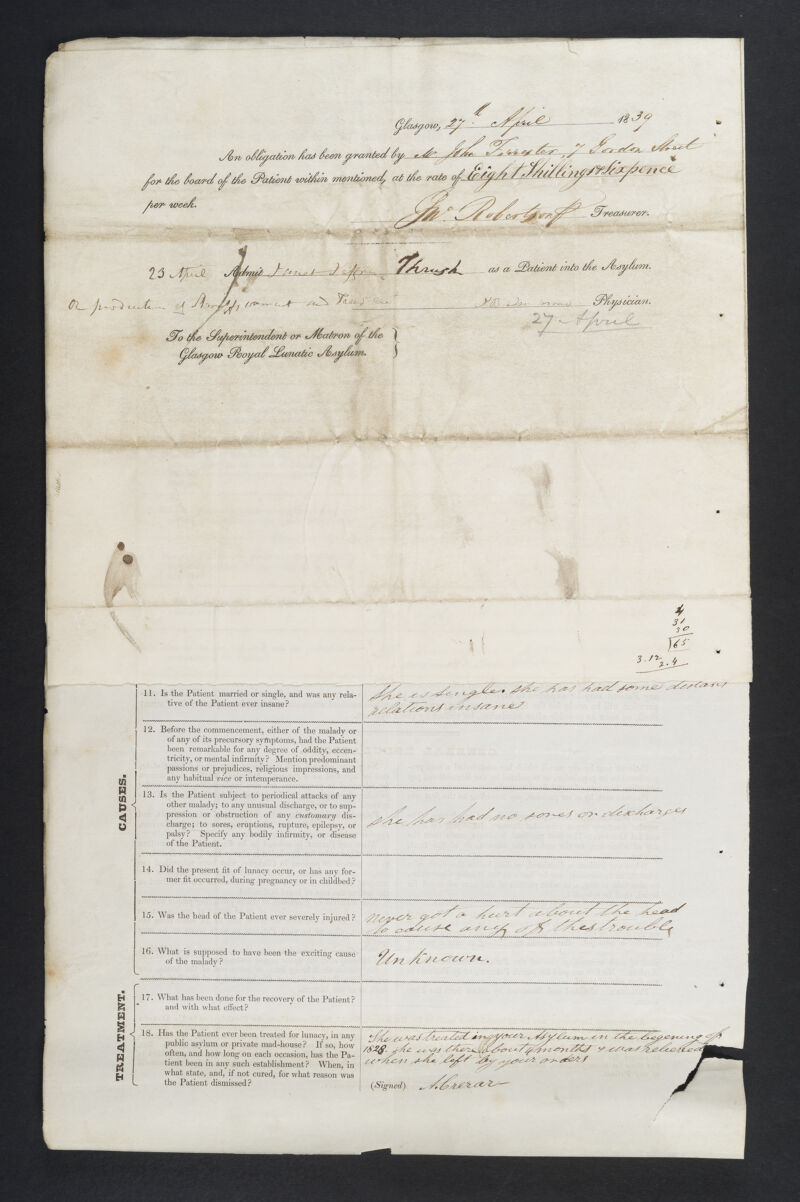 Glasgow, 27th April 1839
An obligation has been granted by Mr John Forrester, 7 Gordon Street
for the board of the Patient within mentioned, at the rate of Eight Shillings & Sixpence
per week.
Jno. Robertson Treasurer.
23 April Admit Janet Thrush as a Patient into the Asylum.
On production of and Physician.
27 April
To the Superintendent or Matron of the
Glasgow Royal Lunatic Asylum.
4
31
30
65
3.12
2.4
CAUSES.
11. Is the Patient married or single, and was any rela-
tive of the Patient ever insane?
She is single. she has had some distant
relations insane
12. Before the commencement, either of the malady or
of any of its precursory symptoms, had the Patient
been remarkable for any degree of oddity, eccen-
tricity, or mental infirmity? Mention predominant
passions or prejudices, religious impressions, and
any habitual vice or intemperance.
13. Is the Patient subject to periodical attacks of any
other malady; to any unusual discharge, or to sup-
pression or obstruction of any customary dis-
charge; to sores, eruptions, rupture, epilepsy, or
palsy? Specify any bodily infirmity, or disease
of the Patient.
she has had no sores or discharges
14. Did the present fit of lunacy occur, or has any for-
mer fit occurred, during pregnancy or in childbed?
15. Was the head of the Patient ever severely injured?
never got a hurt about the head
to cause any of this trouble
16. What is supposed to have been the exciting cause
of the malady?
Unknown.
TREATMENT.
17. What has been done for the recovery of the Patient?
and with what effect?
18. Has the Patient ever been treated for lunacy, in any
public asylum or private mad-house? If so, how
often, and how long on each occasion, has the Pa-
tient been in any such establishment? When, in
what state, and, if not cured, for what reason was
the Patient dismissed?
She was treated in your Asylum in the begening of
1828 she was there about 4 months & was relieved
when she left by your orders
(Signed) A Crerar